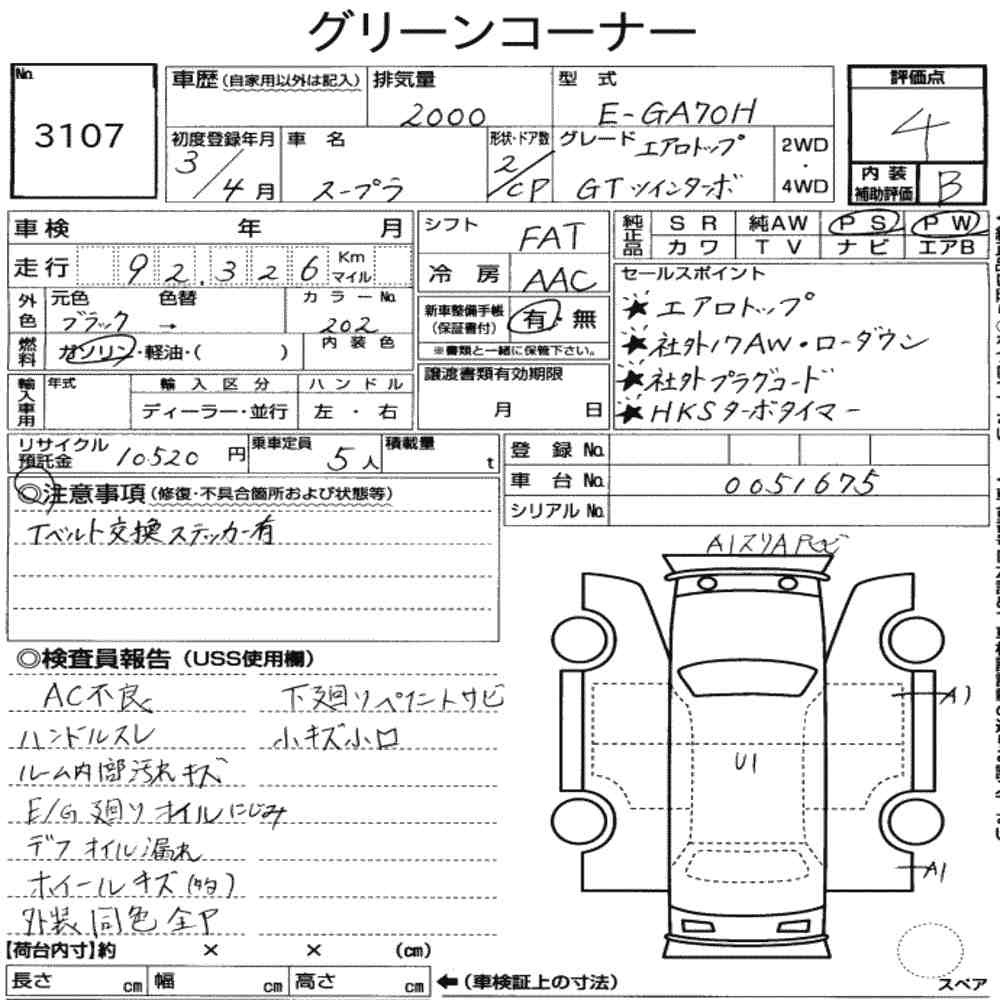 グリーンコーナー
No. 3107
車歴（自家用以外は記入） 排気量 2000 型式 E-GA70H
評価点 4
初度登録年月 3/4月 車名 スープラ 形状・ドア数 2/CP グレード エアロトップ GTツインターボ 2WD・4WD
内装補助評価 B
車検 年 月
走行 92,326 Km マイル
シフト FAT
冷房 AAC
純正品 SR 純AW PS PW
カワ TV ナビ エアB
外色 元色 ブラック → 色替 カラーNo. 202
燃料 ガソリン・軽油・（ ） 内装色
新車整備手帳（保証書付） 有・無
※書類と一緒に保管下さい。
セールスポイント
★エアロトップ
★社外17AW・ローダウン
★社外プラグコード
★HKSターボタイマー
輸入車用 年式 輸入区分 ハンドル
ディーラー・並行 左・右
譲渡書類有効期限
月 日
リサイクル預託金 10.520円 乗車定員 5人 積載量 t
登録No.
車台No. 0051675
シリアルNo.
◎注意事項（修復・不具合箇所および状態等）
Tベルト交換ステッカー有
◎検査員報告（USS使用欄）
AC不良 下廻りペイントサビ
ハンドルスレ 小キズ小凹
ルーム内部汚れキズ
E/G廻りオイルにじみ
デフオイル漏れ
ホイールキズ
外装同色全P
A1スリA
A1
U1
A1
【荷台内寸】約 × × （cm）
長さ cm 幅 cm 高さ cm ←（車検証上の寸法）
スペア